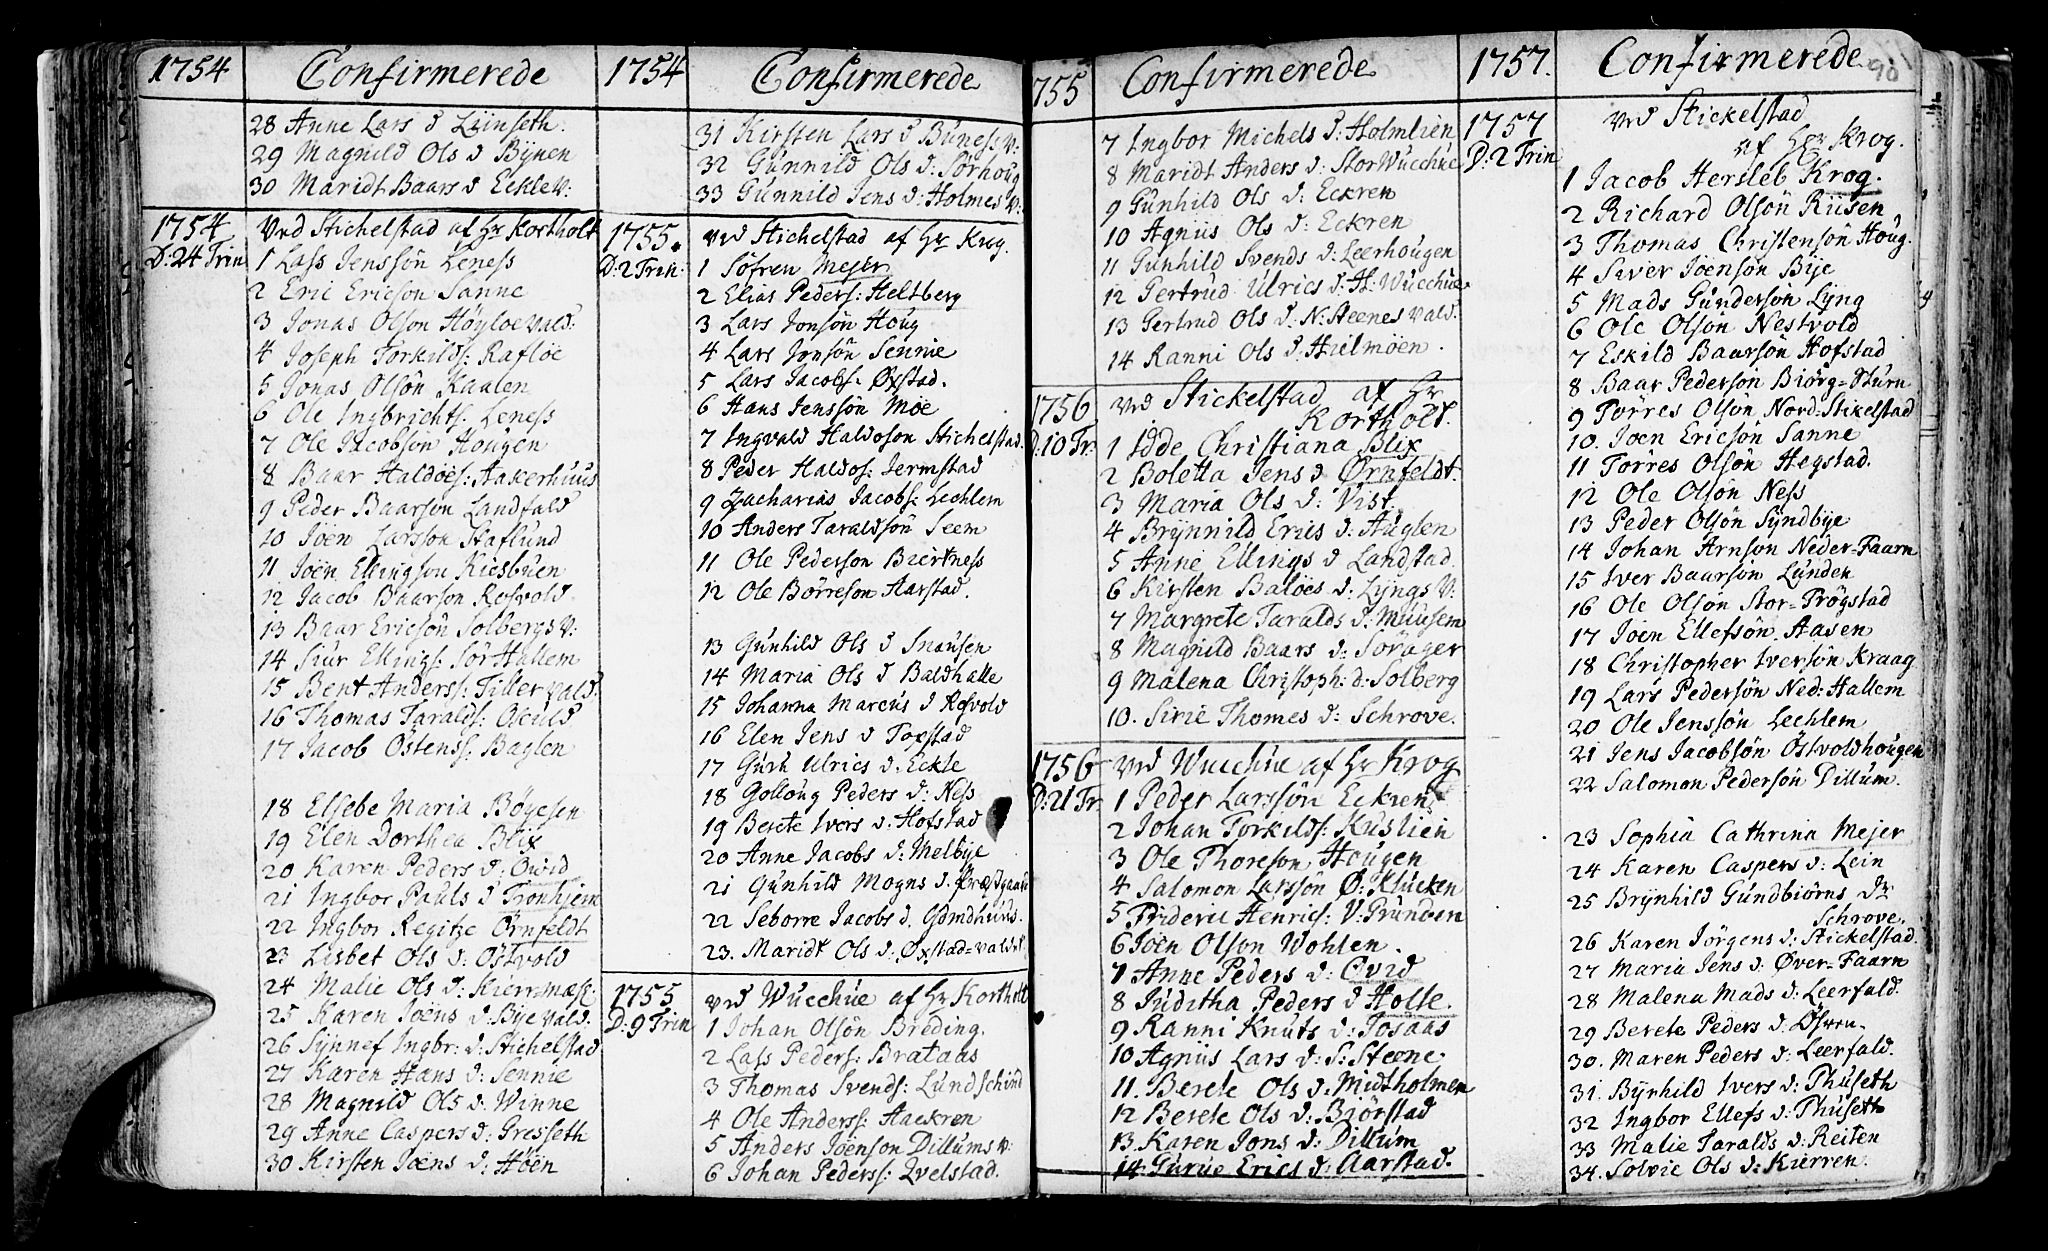 1754 Confirmerede
28 Anne Lars d Liinseth.
29 Magnild Ols d Bÿnen
30 Maridt Baars d Ecklev:
1754 Ved Stichelstad af Hr Kortholt
D: 24 Trin
1 Lass Jenssön Leness
2 Eric Ericson Sanne
3 Jonas Olson Höyloevald:
4 Joseph Torkilds: Rafloe
5 Jonas Olsön Kaalen
6 Ole Ingbrichts: Leness
7 Ole Jacobsön Hougen
8 Baar Haldoes: Aakerhuus
9 Peder Baarson Landfald
10 Joen Larsson Staflund
11 Joen Ellingson Kiesbuen
12 Jacob Baarson Rosvold
13 Baar Ericsön Solbergs v:
14 Siur Ellings: Sör Hallem
15 Bent Anderss: Tiller vald:
16 Thomas Taralds: Okuld
17 Jacob Östenss: Baglen
18 Elsebe Maria Bögesen
19 Elen Dorthea Blix
20 Karen Peders d: Qvid
21 Ingbor Pauls d: Tronhjem
22 Ingbor Regitze Örnfeldt
23 Lisbet Ols d: Östvold
24 Malie Ols d: Kierrmæss:
25 Karen Joens d: Bye vald:
26 Synnef Ingbr: d: Stichelstad
27 Karen Hans d: Sennie
28 Magnild Ols d: Winne
29 Anne Caspers d: Gresseth
30 Kirsten Joens d: Höen
1754 Confirmerede
31 Kirsten Lars d Buness v:
32 Gunnild Ols d: Sörhoug
33 Gunnild Jens d: Holmes v:
1755. Ved Stichelstad af Hr Krog.
D: 2 Trin:
1 Söfren Mejer
2 Elias Peders: Heltberg
3 Lars Jonsön Houg
4 Lars Jonsön Sennie
5 Lars Jacobs: Øxstad.
6 Hans Jenssön Moe
7 Ingvald Haldoson Stichelstad.
8 Peder Haldos: Jermstad
9 Zacharias Jacobs: Lechlem
10 Anders Taraldsön Seem
11 Ole Pederson Biertness
12 Ole Börreson Aarstad.
13 Gunhild Ols d Snausen
14 Maria Ols d Baldhalle
15 Johanna Marcus d Rosvold
16 Elen Jens d Toxstad
17 Guru Ulrics d: Eckle
18 Golloug Peders d: Ness
19 Berete Ivers d: Hofstad
20 Anne Jacobs d: Melbye
21 Gunhild Mogns d. Præstgaard
22 Seborre Jacobs d.
23. Maridt Ols d: Øxstad-vald
1755 Ved Wucchue af Hr Kortholt
D: 9 Trin
1 Johan Olsön Breding.
2 Lass Peders: Brataas
3 Thomas Svends: Lundschind
4 Ole Anderss: Haekren
5 Anders Joenson Dillums v:
6 Johan Peders: Qvelstad.
755 Confirmerede
7 Ingbor Michels d: Holmlien
8 Maridt Anders d: Stor Wucchue
9 Gunhild Ols d: Eckren
10 Agnus Ols d: Eckren
11 Gunhild Svends d: Leerhougen
12 Gertrud Ulrics d: H: Wucchue
13 Gertrud Ols d: N: Steenes vald:
14 Ranni Ols d: Hielmöen.
1756 Ved Stickelstad af Hr
D: 10 Tr. Kortholt.
1 Idde Christiana Blix
2 Boletta Jens d Ørnfeldt.
3 Maria Ols d: Vist
4 Brÿnnild Erics d: Auglen
5 Anne Ellings d Landstad.
6 Kirsten Baloes d: Lÿngs v:
7 Margrete Taralds d: Muusem
8 Magnild Baars d: Sörager
9 Malena Christoph: d: Solberg
10. Sirie Thomes d: Schrove.
1756 Ved Wucchue af Hr Krog
D: 21 Tr
1 Peder Larssön Eckren
2 Johan Torkilds: Kuslien
3 Ole Thoreson Hougen
4 Salomon Larssön Ø: Klucken
5 Frideric Henrics: V: Grunden
6 Joen Olson Wohlen.
7 Anne Peders d: Qvid
8 Juditha Peders d Holse.
9 Ranni Knuts d: Tosaas
10 Agnus Lars d: S: Steene
11. Berete Ols d: Midtholmen
12 Berete Ols d: Biörstad
13 Karen Jons d: Dillum
14 Gurue Erics d: Aarstad.
1757. Confirmerede 90
1757 Ved Stickelstad
D: 2 Trin af Hr Krog.
1 Jacob Hersleb Krog.
2 Richard Olsön Riisen
3 Thomas Christensön Houg.
4 Siver Joensön Bije
5 Mads Gundersön Lÿng
6 Ole Olsön Nestvold
7 Eskild Baarsön Hofstad
8 Baar Pedersön Biörg-Sturn
9 Törres Olsön Nord-Stikelstad
10. Joen Ericsön Sanne
11 Törres Olsön Hegstad.
12 Ole Olsön Ness
13 Peder Olsön Sÿndbÿe
14 Johan Arnson Neder-Faarn
15 Iver Baarsön Lunden
16 Ole Olsön Stor-Trögstad
17 Joen Ellefsön Aasen
18 Christopher Iversön Kraag
19 Lars Pedersön Ned: Hallem
20 Ole Jenssön Lechlem
21 Jens Jacobsön Östvoldhougen
22 Salomon Pedersön Dillum.
23 Sophia Cathrina Mejer
24 Karen Caspers d: Lein
25 Brÿnhild Gundbiörns dr
Schrove.
26 Karen Jörgens d: Stickelstad.
27 Maria Jens d: Øver-Faarn
28 Malena Mads d: Leerfald.
29 Berete Peders d:
30. Maren Peders d: Leerfald.
31. Bÿrhild Ivers d: Thuseth
32 Ingbor Ellefs d: Thuseth
33 Malie Taralds d: Reiten
34. Solvie Ols d: Kierren.